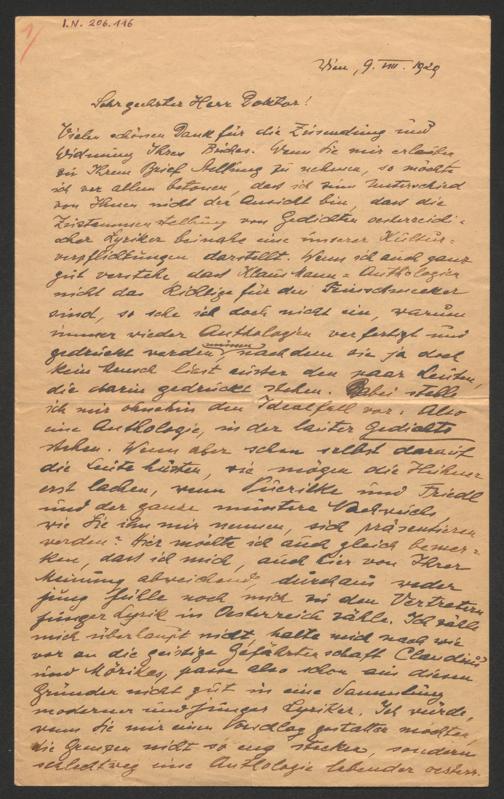 I.N. 206.116
1/
Wien, 9. VIII. 1929
Sehr geehrter Herr Doktor!
Vielen schönen Dank für die Zusendung und
Widmung Ihres Buches. Wenn Sie mir erlauben
zu Ihrem Brief Stellung zu nehmen, so möchte
ich vor allem betonen, dass ich zum Unterschied
von Ihnen nicht der Ansicht bin, dass die
Zusammenstellung von Gedichten oesterreichi-
scher Lyriker beinahe eine unserer Kultur-
verpflichtungen darstellt. Wenn ich auch ganz
gut verstehe dass Klaus Mann-Anthologien
nicht das Richtige für den Feinschmecker
sind, so sehe ich doch nicht ein, warum
immer wieder Anthologien verfertigt und
gedruckt werden müssen, nachdem sie ja doch
kein Mensch liest ausser den paar Leuten,
die darin gedruckt stehen. Dabei stelle
ich mir ohnehin den Idealfall vor: Also
eine Anthologie, in der lauter Gedichte
stehen. Wenn aber schon selbst darauf
die Leute husten, wie mögen die Hühner
erst lachen, wenn und Friedl
und der ganze muntere Nachwuchs
wie Sie ihn mir nennen, sich präsentieren
werden? Hier möchte ich auch gleich bemer-
ken, dass ich mich, auch hier von Ihrer
Meinung abweichend, durchaus weder
jung fühle noch mich zu den Vertretern
junger Lyrik in Oesterreich zähle. Ich zähle
mich überhaupt nicht, halte mich nach wie
vor an die geistige Gefährtenschaft Claudius
und Mörikes, passe also schon aus diesen
Gründen nicht gut in eine Sammlung
moderner und junger Lyriker. Ich würde,
wenn Sie mir einen Vorschlag gestatten möchten,
die Grenzen nicht so eng stecken, sondern
schlechtweg eine Anthologie lebender oesterr.